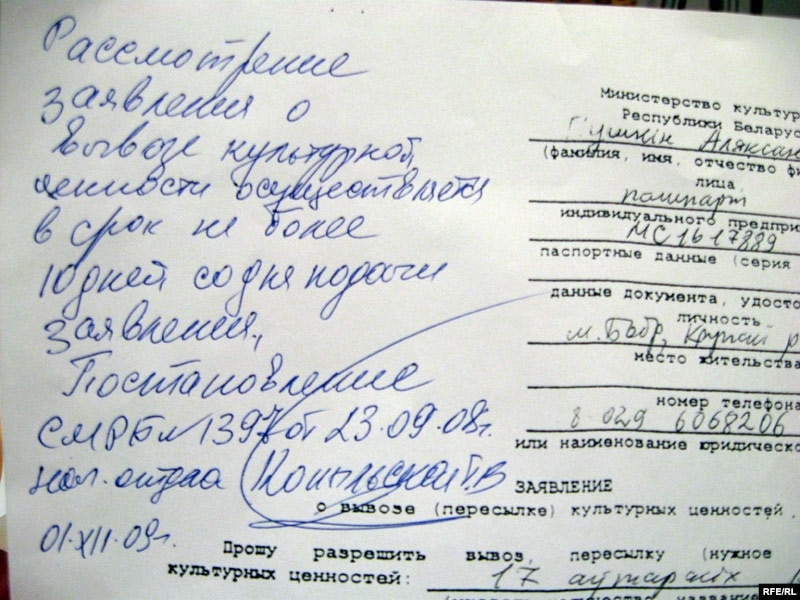 Рассмотрение
заявления о
вывозе культурной
ценности осуществляется
в срок не более
10 дней со дня подачи
заявления.
Постановление
СМРБ № 1397 от 23.09.08г.
нач. отдела
01.XII.09г.
Министерство культур
Республики Беларус
Пушкін Аляксан
(фамилия, имя, отчество фи
лица,
пашпарт
индивидуального предпри
МС 1617889
паспортные данные (серия
данные документа, удосто
личность
м. Бобр, Крупскі р
место жительства
номер телефона
8 029 6068206
или наименование юридическо
ЗАЯВЛЕНИЕ
о вывозе (пересылке) культурных ценностей,
Прошу разрешить вывоз, пересылку (нужное
культурных ценностей: 17 аўтарскіх
RFE/RL